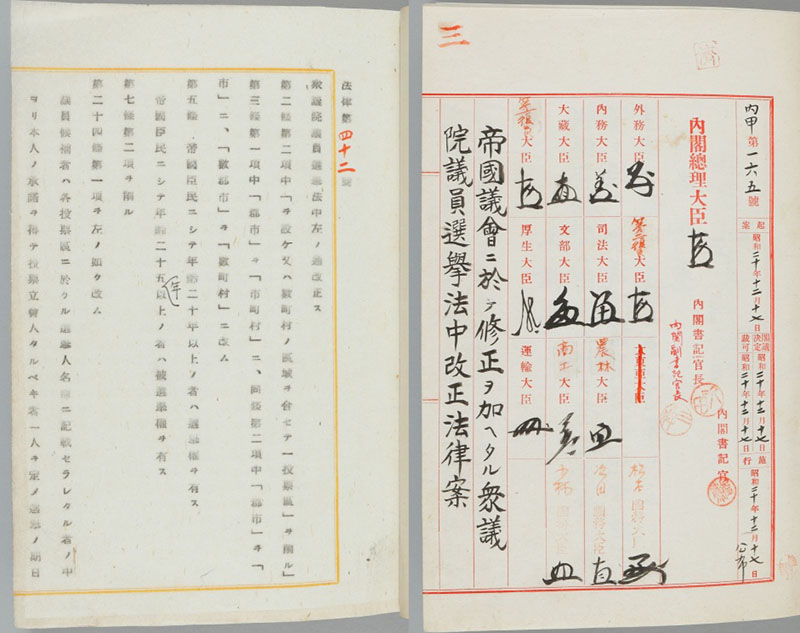 三
内甲第一六五號
起案昭和二十年十二月十七日
閣議決定昭和二十年十二月十七日
裁可昭和二十年十二月十七日
施行昭和二十年十二月十七日公布
内閣總理大臣
内閣書記官長
内閣副書記官長
内閣書記官
外務大臣
第一復員大臣
内務大臣
司法大臣
農林大臣
大藏大臣
文部大臣
商工大臣
大臣
厚生大臣
運輸大臣
松本國務大臣
次田國務大臣
小林國務大臣
帝國議會ニ於テ修正ヲ加ヘタル衆議
院議員選擧法中改正法律案
法律第四十二號
衆議院議員選擧法中左ノ通改正ス
第二條第二項中「ヲ設ケ又ハ數町村ノ區域ヲ合セテ一投票區」ヲ削ル
第三條第一項中「郡市」ヲ「市町村」ニ、同條第二項中「郡市」ヲ「
市」ニ、「數郡市」ヲ「數町村」ニ改ム
第五條 帝國臣民ニシテ年齡二十年以上ノ者ハ選擧權ヲ有ス
帝國臣民ニシテ年齡二十五年以上ノ者ハ被選擧權ヲ有ス
第七條第二項ヲ削ル
第二十四條第一項ヲ左ノ如ク改ム
議員候補者ハ各投票區ニ於ケル選擧人名簿ニ記載セラレタル者ノ中
ヨリ本人ノ承諾ヲ得テ投票立會人タルベキ者一人ヲ定メ選擧ノ期日